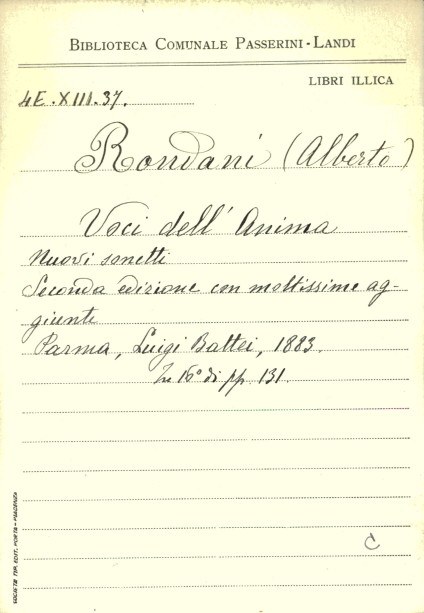 BIBLIOTECA COMUNALE PASSERINI-LANDI
LIBRI ILLICA
4E.XIII.37.
Rondani (Alberto)
Voci dell'Anima
Nuovi sonetti
Seconda edizione con moltissime ag-
giunte
Parma, Luigi Battei, 1883.
In 16° di pp 131.
C
SOCIETÀ TIP. EDIT. PORTA - PIACENZA